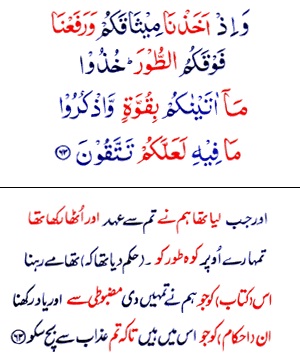 وَاِذْ اَخَذْنَا مِيْثَاقَكُمْ وَرَفَعْنَا
فَوْقَكُمُ الطُّوْرَ ؕ خُذُوْا
مَاۤ اٰتَيْنٰكُمْ بِقُوَّةٍ وَّاذْكُرُوْا
مَا فِيْهِ لَعَلَّكُمْ تَتَّقُوْنَ ﴿۶۳﴾
اور جب لیا تھا ہم نے تم سے عہد اور اُٹھا رکھا تھا
تمہارے اُوپر کوہ طور کو ۔ (حکم دیا تھا کہ) تھامے رہنا
اس (کتاب) کو جو ہم نے تمہیں دی مضبوطی سے اور یاد رکھنا
ان (احکام) کو جو اس میں ہیں تاکہ تم عذاب سے بچ سکو ﴿۶۳﴾